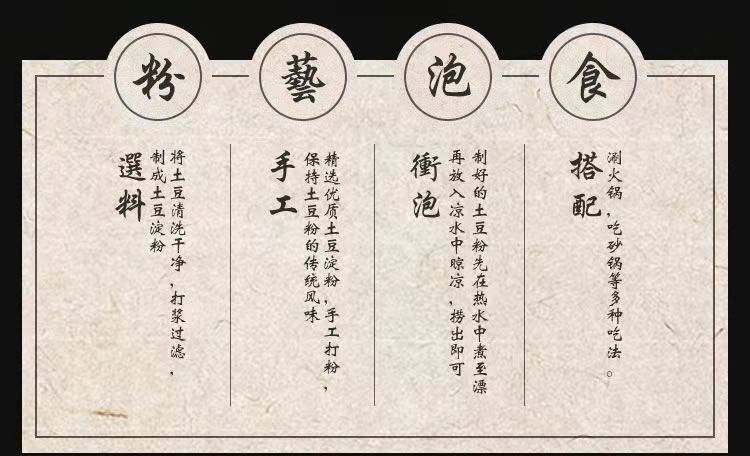 粉
選料
将土豆清洗干净,打浆过滤,
制成土豆淀粉
藝
手工
精选优质土豆淀粉,手工打粉,
保持土豆粉的传统风味
泡
衝泡
制好的土豆粉先在热水中煮至漂
再放入凉水中晾凉,捞出即可
食
搭配
涮火锅,吃砂锅等多种吃法。